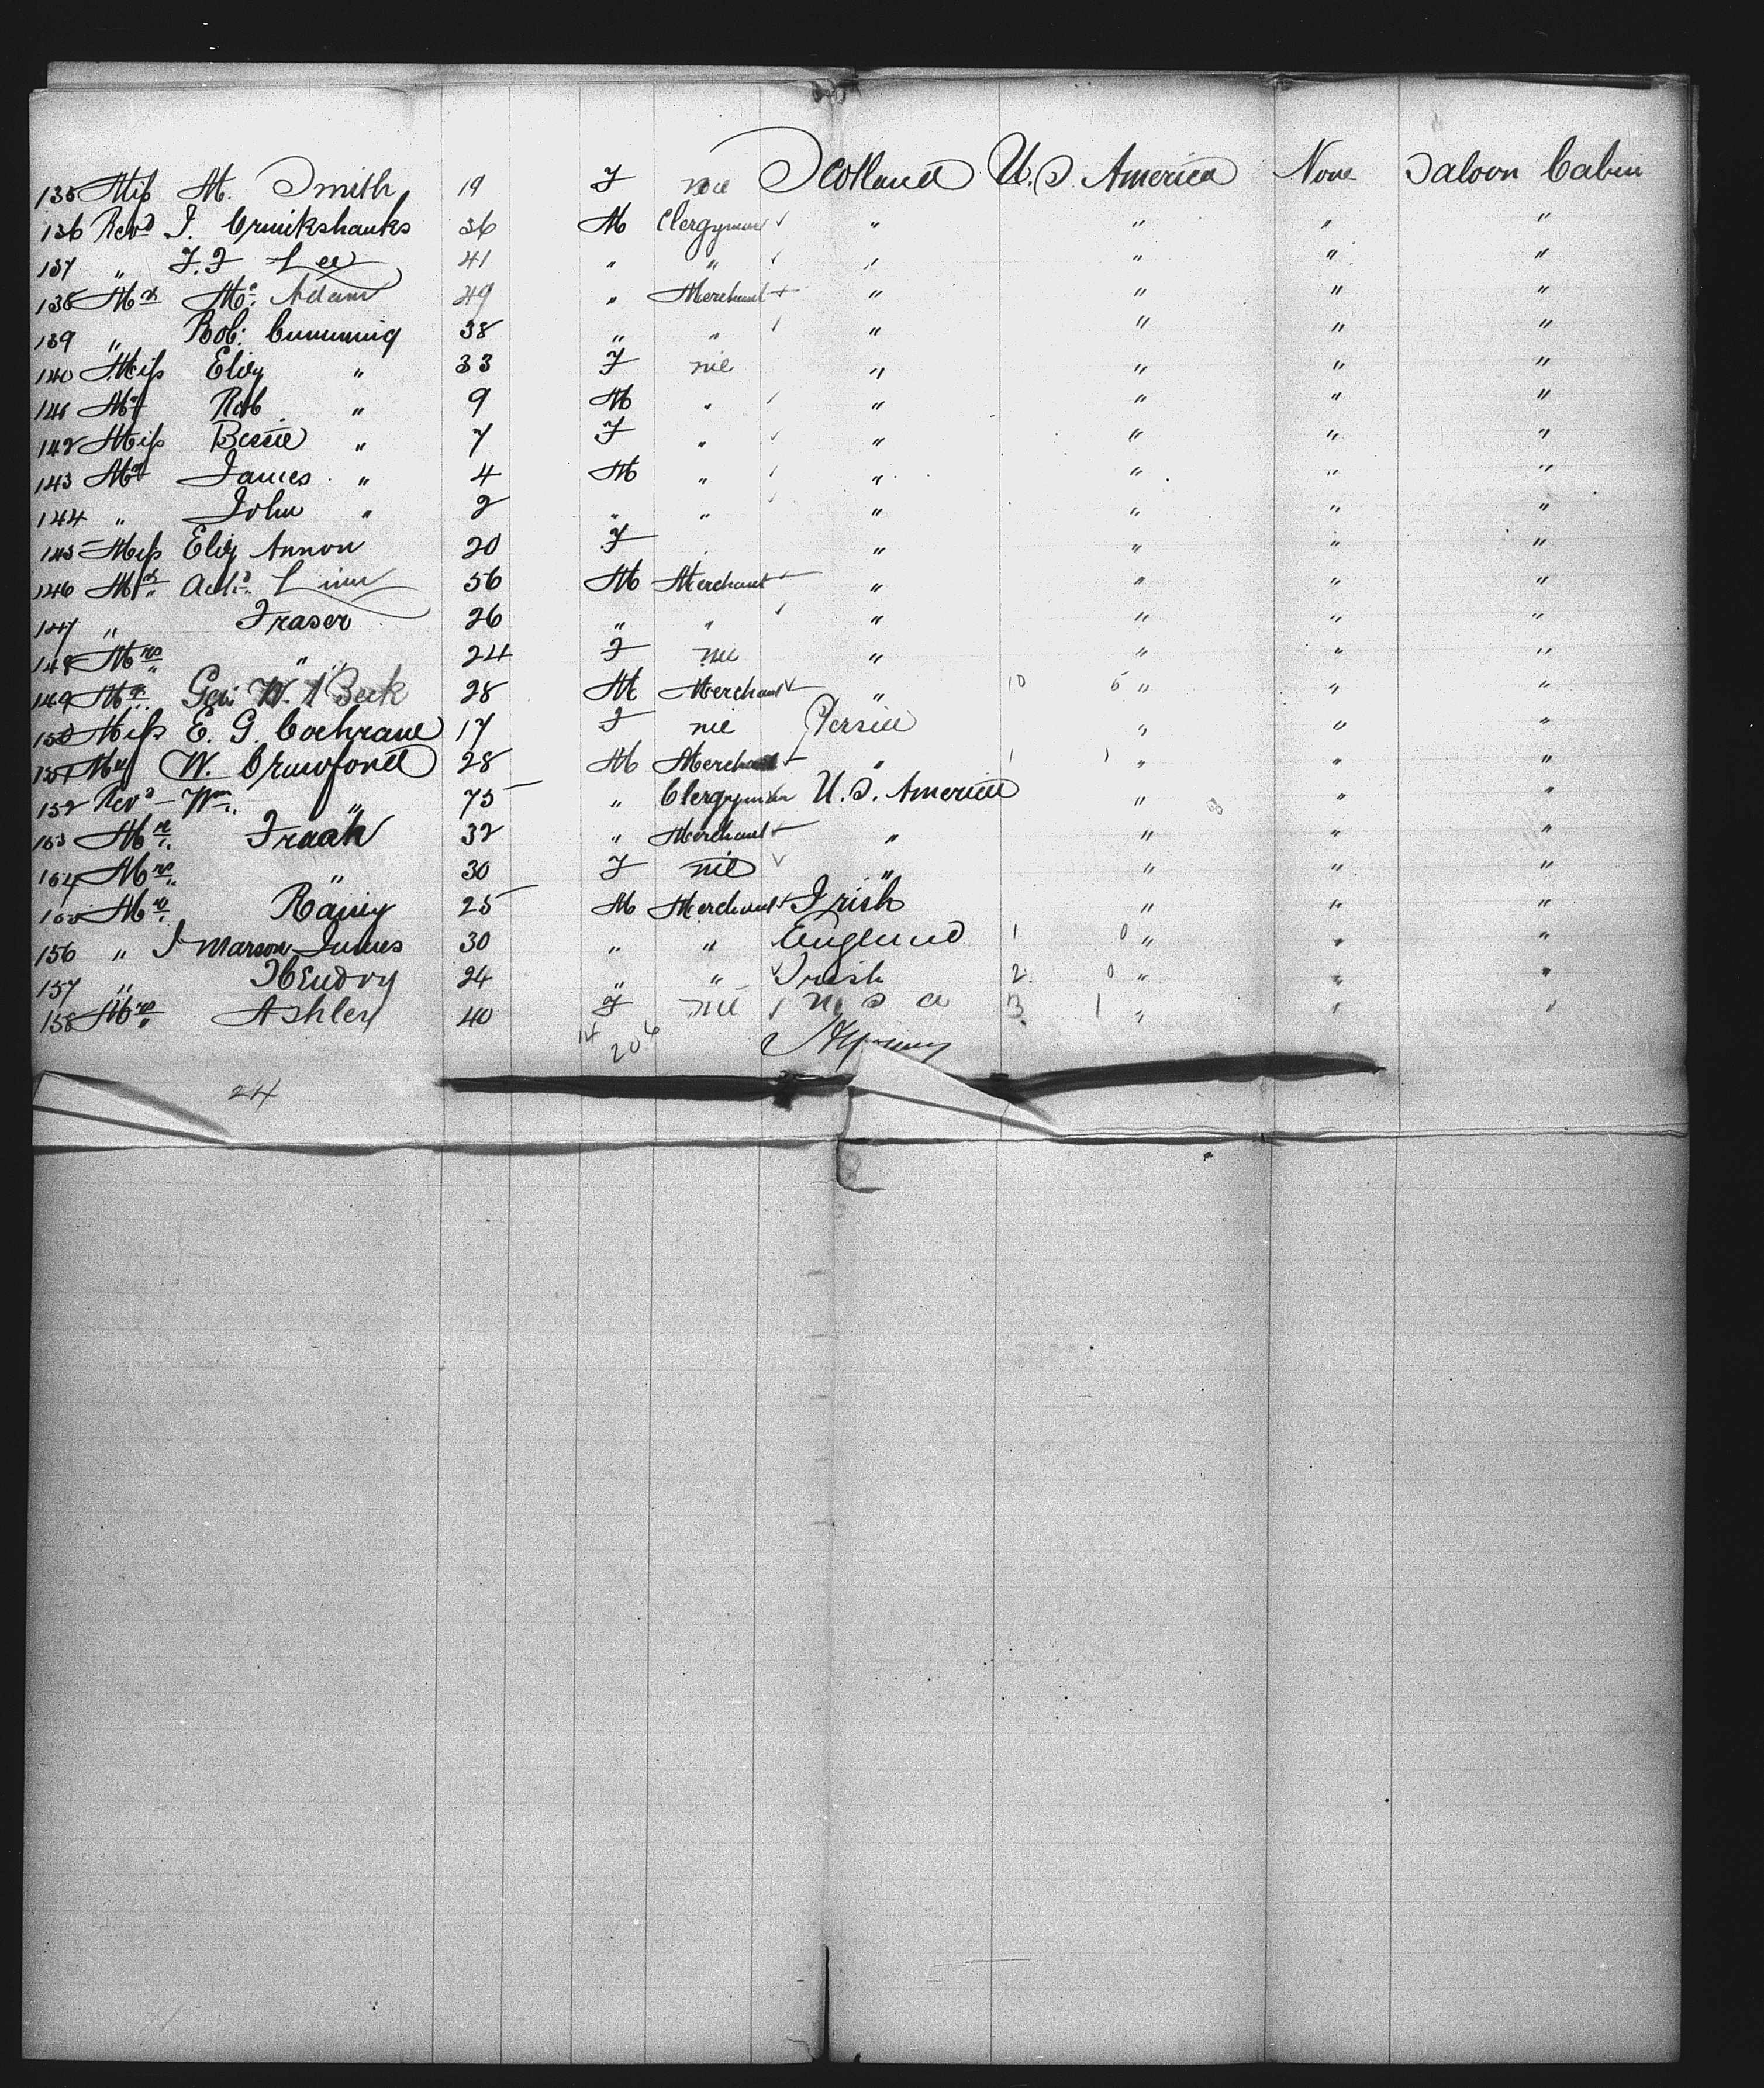 135 Miss M. Smith 19 F nil Scotland U.S. America None Saloon Cabin
136 Revd J. Cruikshanks 36 M Clergyman " " " "
137 " J. F Lee 41 " " " " " "
138 Mr Mc. Adam 49 " Merchant " " " "
139 " Rob: Cumming 38 " " " " " "
140 Miss Eliz " 33 F nil " " " "
141 Mr Rob " 9 M " " " " "
142 Miss Bessie " 7 F " " " " "
143 Mr James " 4 M " " " " "
144 " John " 2 " " " " " "
145 Miss Eliz Annon 20 F " " " " "
146 Mr Linn 56 M Merchant " " " "
147 " Fraser 26 " " " " " "
148 Mrs " 24 F nil " " " "
149 Mr Geo W. A Beck 28 M Merchant " 10 5 " " "
150 Miss E. G. Cochrane 17 F nil Persia " " "
151 Mr W. Crawford 28 M Merchant " 1 1 " " "
152 Revd Wm. " 75 " Clergyman U.S. America " " "
153 Mr. Fraah 32 " Merchant " " " "
154 Mrs. " 30 F nil " " " "
155 Mr. Rainy 25 M Merchant Irish " " "
156 " J Marson Innes 30 " " England 1 0 " " "
157 " Hendry 24 " " Irish 2 0 " " "
158 Mrs Ashley 40 F nil U S A 3 1 " " "
14 20 6
24